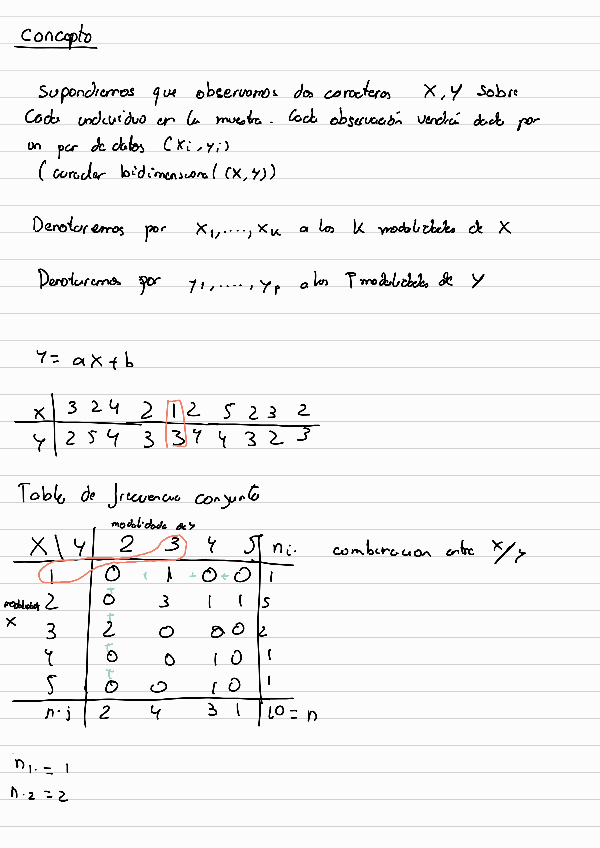 Concepto
Supondremos que observamos dos caracteres X, Y sobre
Cada individuo en la muestra. Cada observación vendrá dada por
un par de datos (xi, yi)
(caracter bidimensional (X, Y))
Denotaremos por x1, ...., xk a las K modalidades de X
Denotaremos por y1, ....., yp a las P modalidades de Y
Y = aX + b
X | 3 2 4 2 1 2 5 2 3 2
Y | 2 5 4 3 3 4 4 3 2 3
Tabla de frecuencia conjunta
modalidades de y
X \ Y | 2 3 4 5 | ni. combinacion entre x/y
1 | 0 1 0 0 | 1
modalidades 2 | 0 3 1 1 | 5
x 3 | 2 0 0 0 | 2
4 | 0 0 1 0 | 1
5 | 0 0 1 0 | 1
n.j | 2 4 3 1 | 10 = n
n1. = 1
n.2 = 2